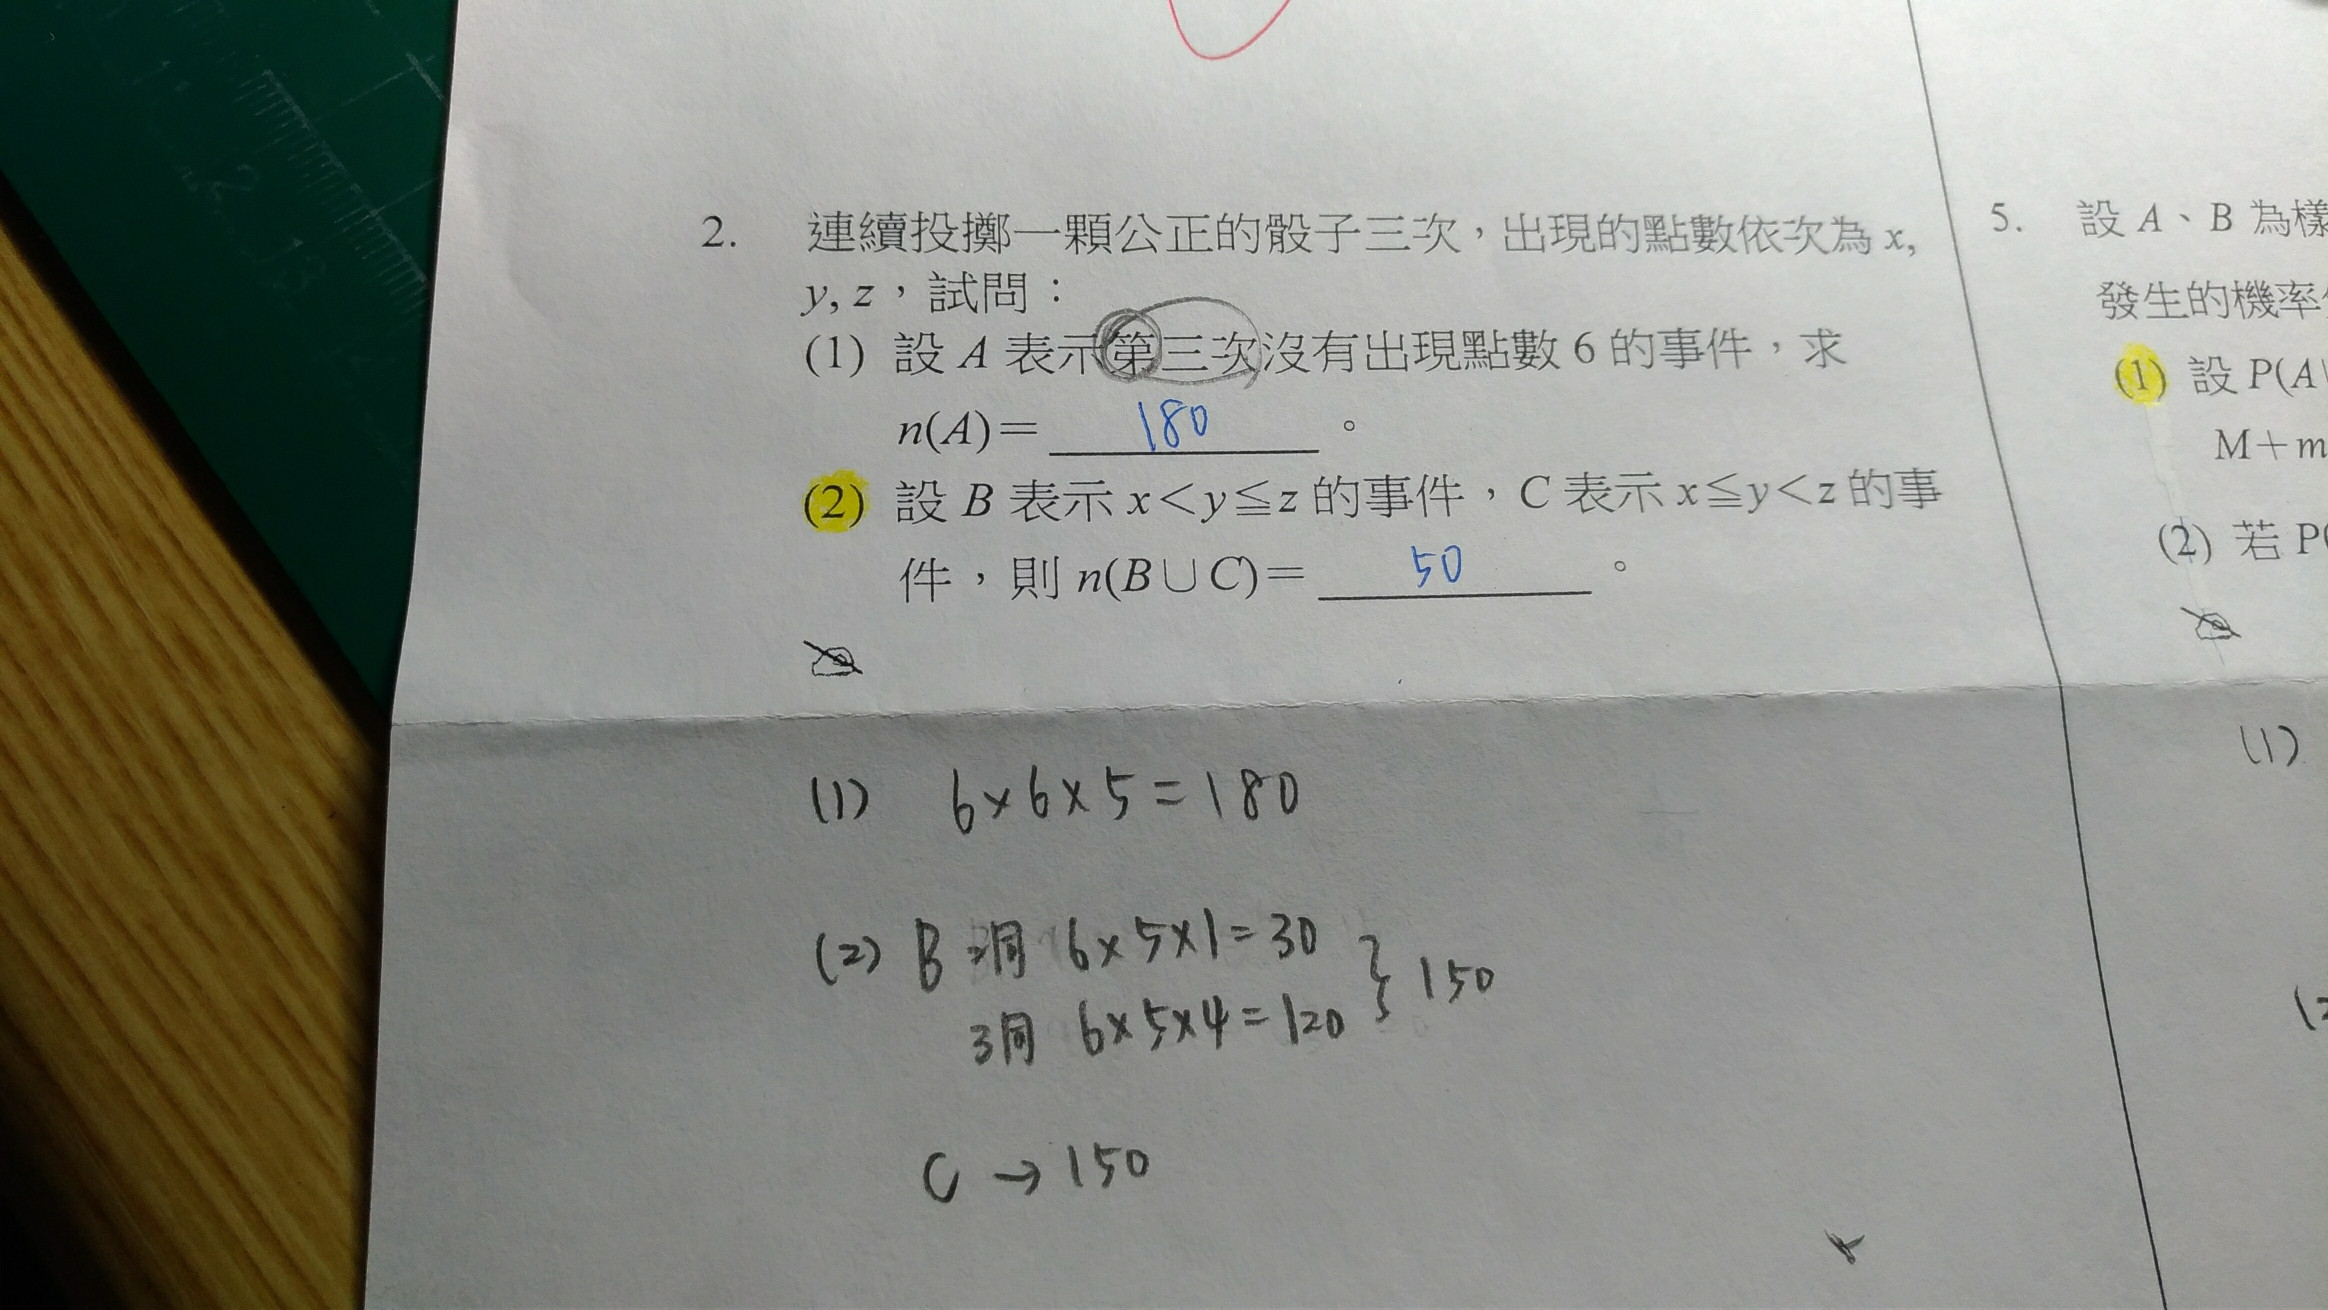 2. 連續投擲一顆公正的骰子三次，出現的點數依次為 x,
y, z，試問：
(1) 設 A 表示第三次沒有出現點數 6 的事件，求
n(A)＝ 180 。
(2) 設 B 表示 x＜y≦z 的事件，C 表示 x≦y＜z 的事
件，則 n(B∪C)＝ 50 。
(1) 6×6×5=180
(2) B 2同 6×5×1=30
3同 6×5×4=120 } 150
C → 150
5. 設 A、B 為樣
發生的機率
(1) 設 P(A
M＋m
(2) 若 P(
(1)